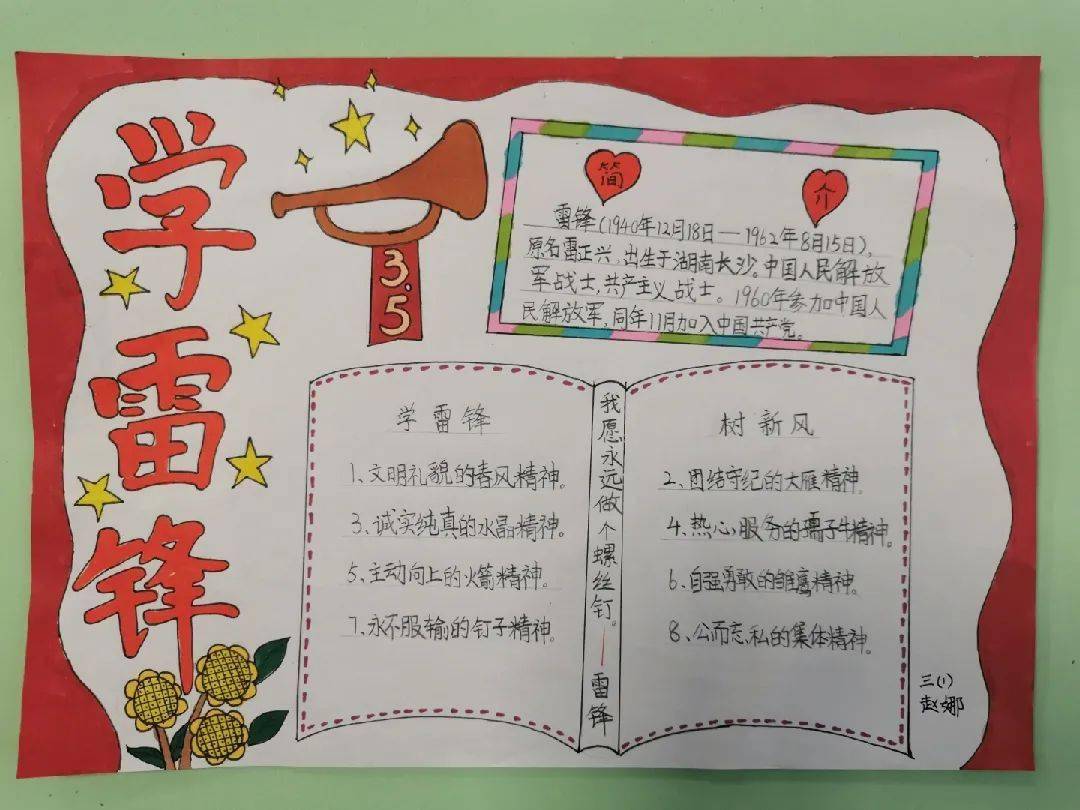 学雷锋
3.5
简介
雷锋(1940年12月18日—1962年8月15日),
原名雷正兴,出生于湖南长沙。中国人民解放
军战士,共产主义战士。1960年参加中国人
民解放军,同年11月加入中国共产党。
学雷锋
1、文明礼貌的春风精神。
3、诚实纯真的水晶精神。
5、主动向上的火箭精神。
7、永不服输的钉子精神。
我愿永远做个螺丝钉。——雷锋
树新风
2、团结守纪的大雁精神。
4、热心服务的孺子牛精神。
6、自强勇敢的雏鹰精神。
8、公而忘私的集体精神。
三(1)
赵娜